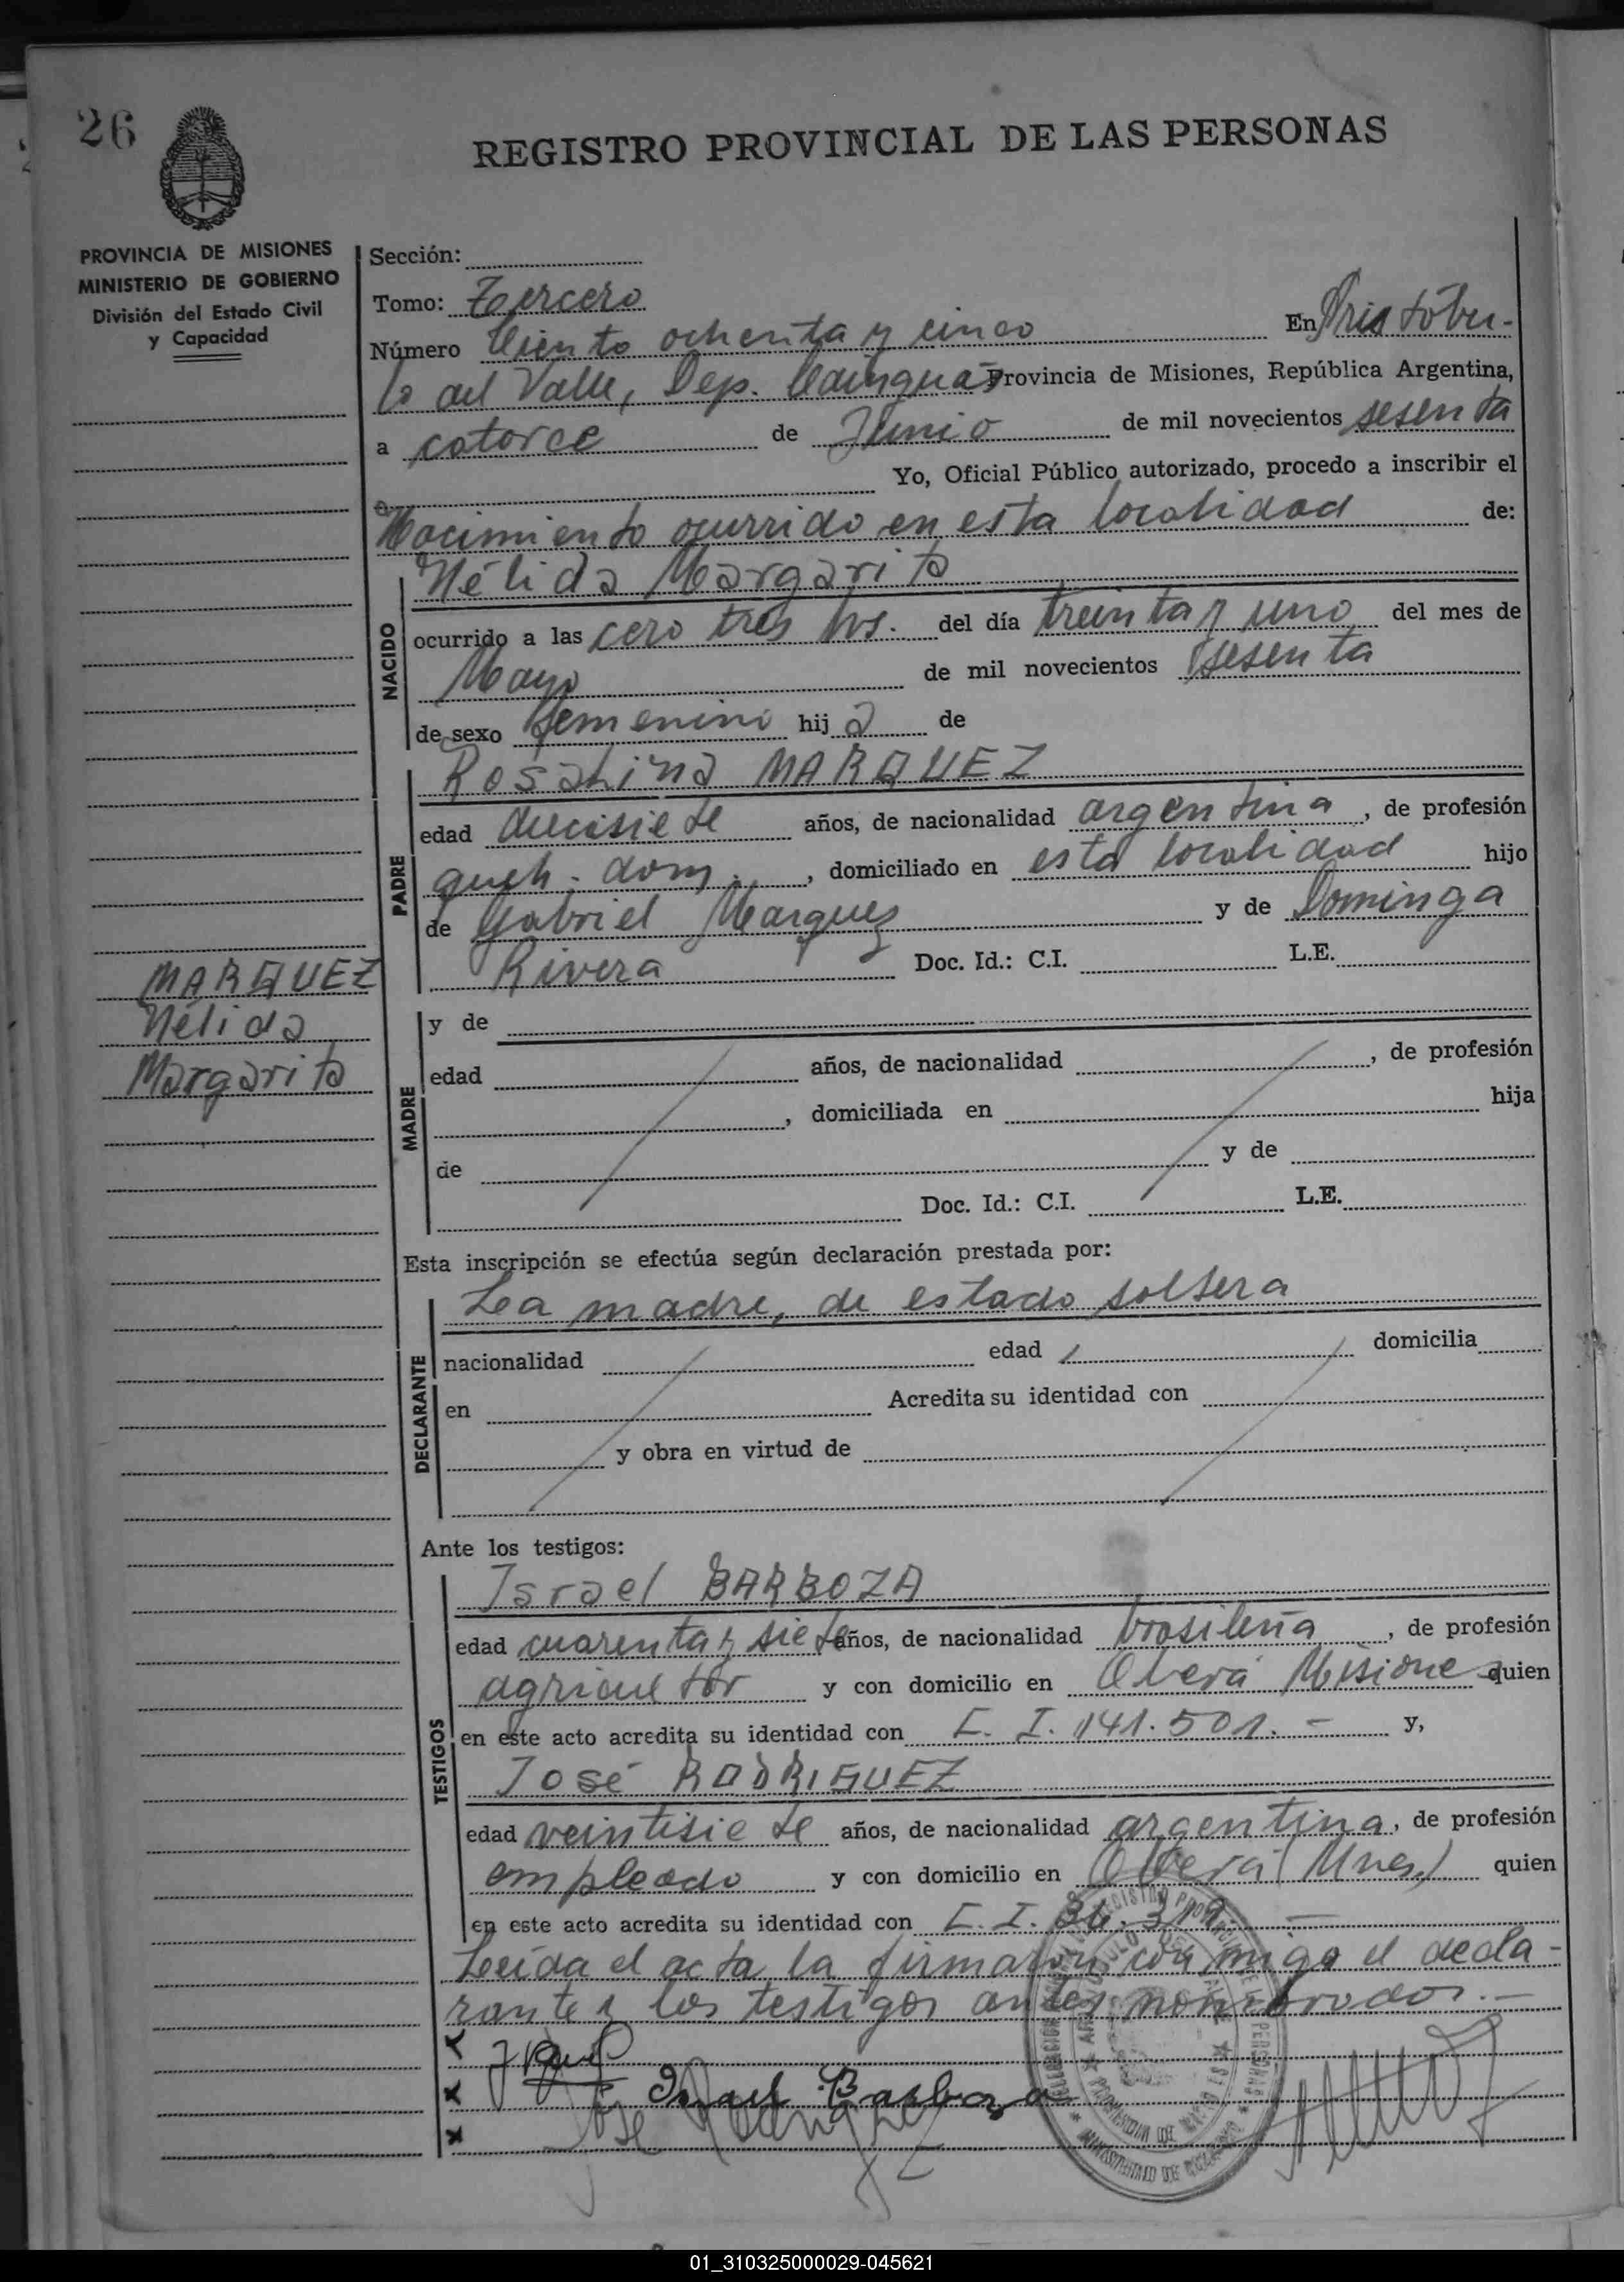 26
REGISTRO PROVINCIAL DE LAS PERSONAS
PROVINCIA DE MISIONES
MINISTERIO DE GOBIERNO
División del Estado Civil
y Capacidad
Sección:
Tomo: Tercero
Número Ciento ochenta y cinco En Aristóbu-
lo del Valle, Dep. Cainguás Provincia de Misiones, República Argentina,
a catorce de Junio de mil novecientos sesenta
Yo, Oficial Público autorizado, procedo a inscribir el
Nacimiento ocurrido en esta localidad de:
NACIDO
Nélida Margarita
ocurrido a las cero tres hs. del día treinta y uno del mes de
Mayo de mil novecientos sesenta
de sexo femenino hij a de
PADRE
Rosalina MARQUEZ
edad diecisiete años, de nacionalidad argentina, de profesión
queh. dom., domiciliado en esta localidad hijo
de Gabriel Marquez y de Dominga
Rivera Doc. Id.: C.I. L.E.
MARQUEZ
Nélida
Margarita
MADRE
y de
edad años, de nacionalidad , de profesión
, domiciliada en hija
de y de
Doc. Id.: C.I. L.E.
Esta inscripción se efectúa según declaración prestada por:
DECLARANTE
Lea madre, de estado soltera
nacionalidad edad domicilia
en Acredita su identidad con
y obra en virtud de
Ante los testigos:
TESTIGOS
Israel BARBOZA
edad cuarenta y siete años, de nacionalidad brasileña, de profesión
agricultor y con domicilio en Oberá Misiones quien
en este acto acredita su identidad con C. I. 141.501.- y,
José RODRIGUEZ
edad veintisiete años, de nacionalidad argentina, de profesión
empleado y con domicilio en Oberá (Mnes.) quien
en este acto acredita su identidad con C. I.
Leída el acta, la firmaron conmigo el decla-
rante y los testigos antes nombrados.-
Israel Barboza
José Rodriguez
01_310325000029-045621